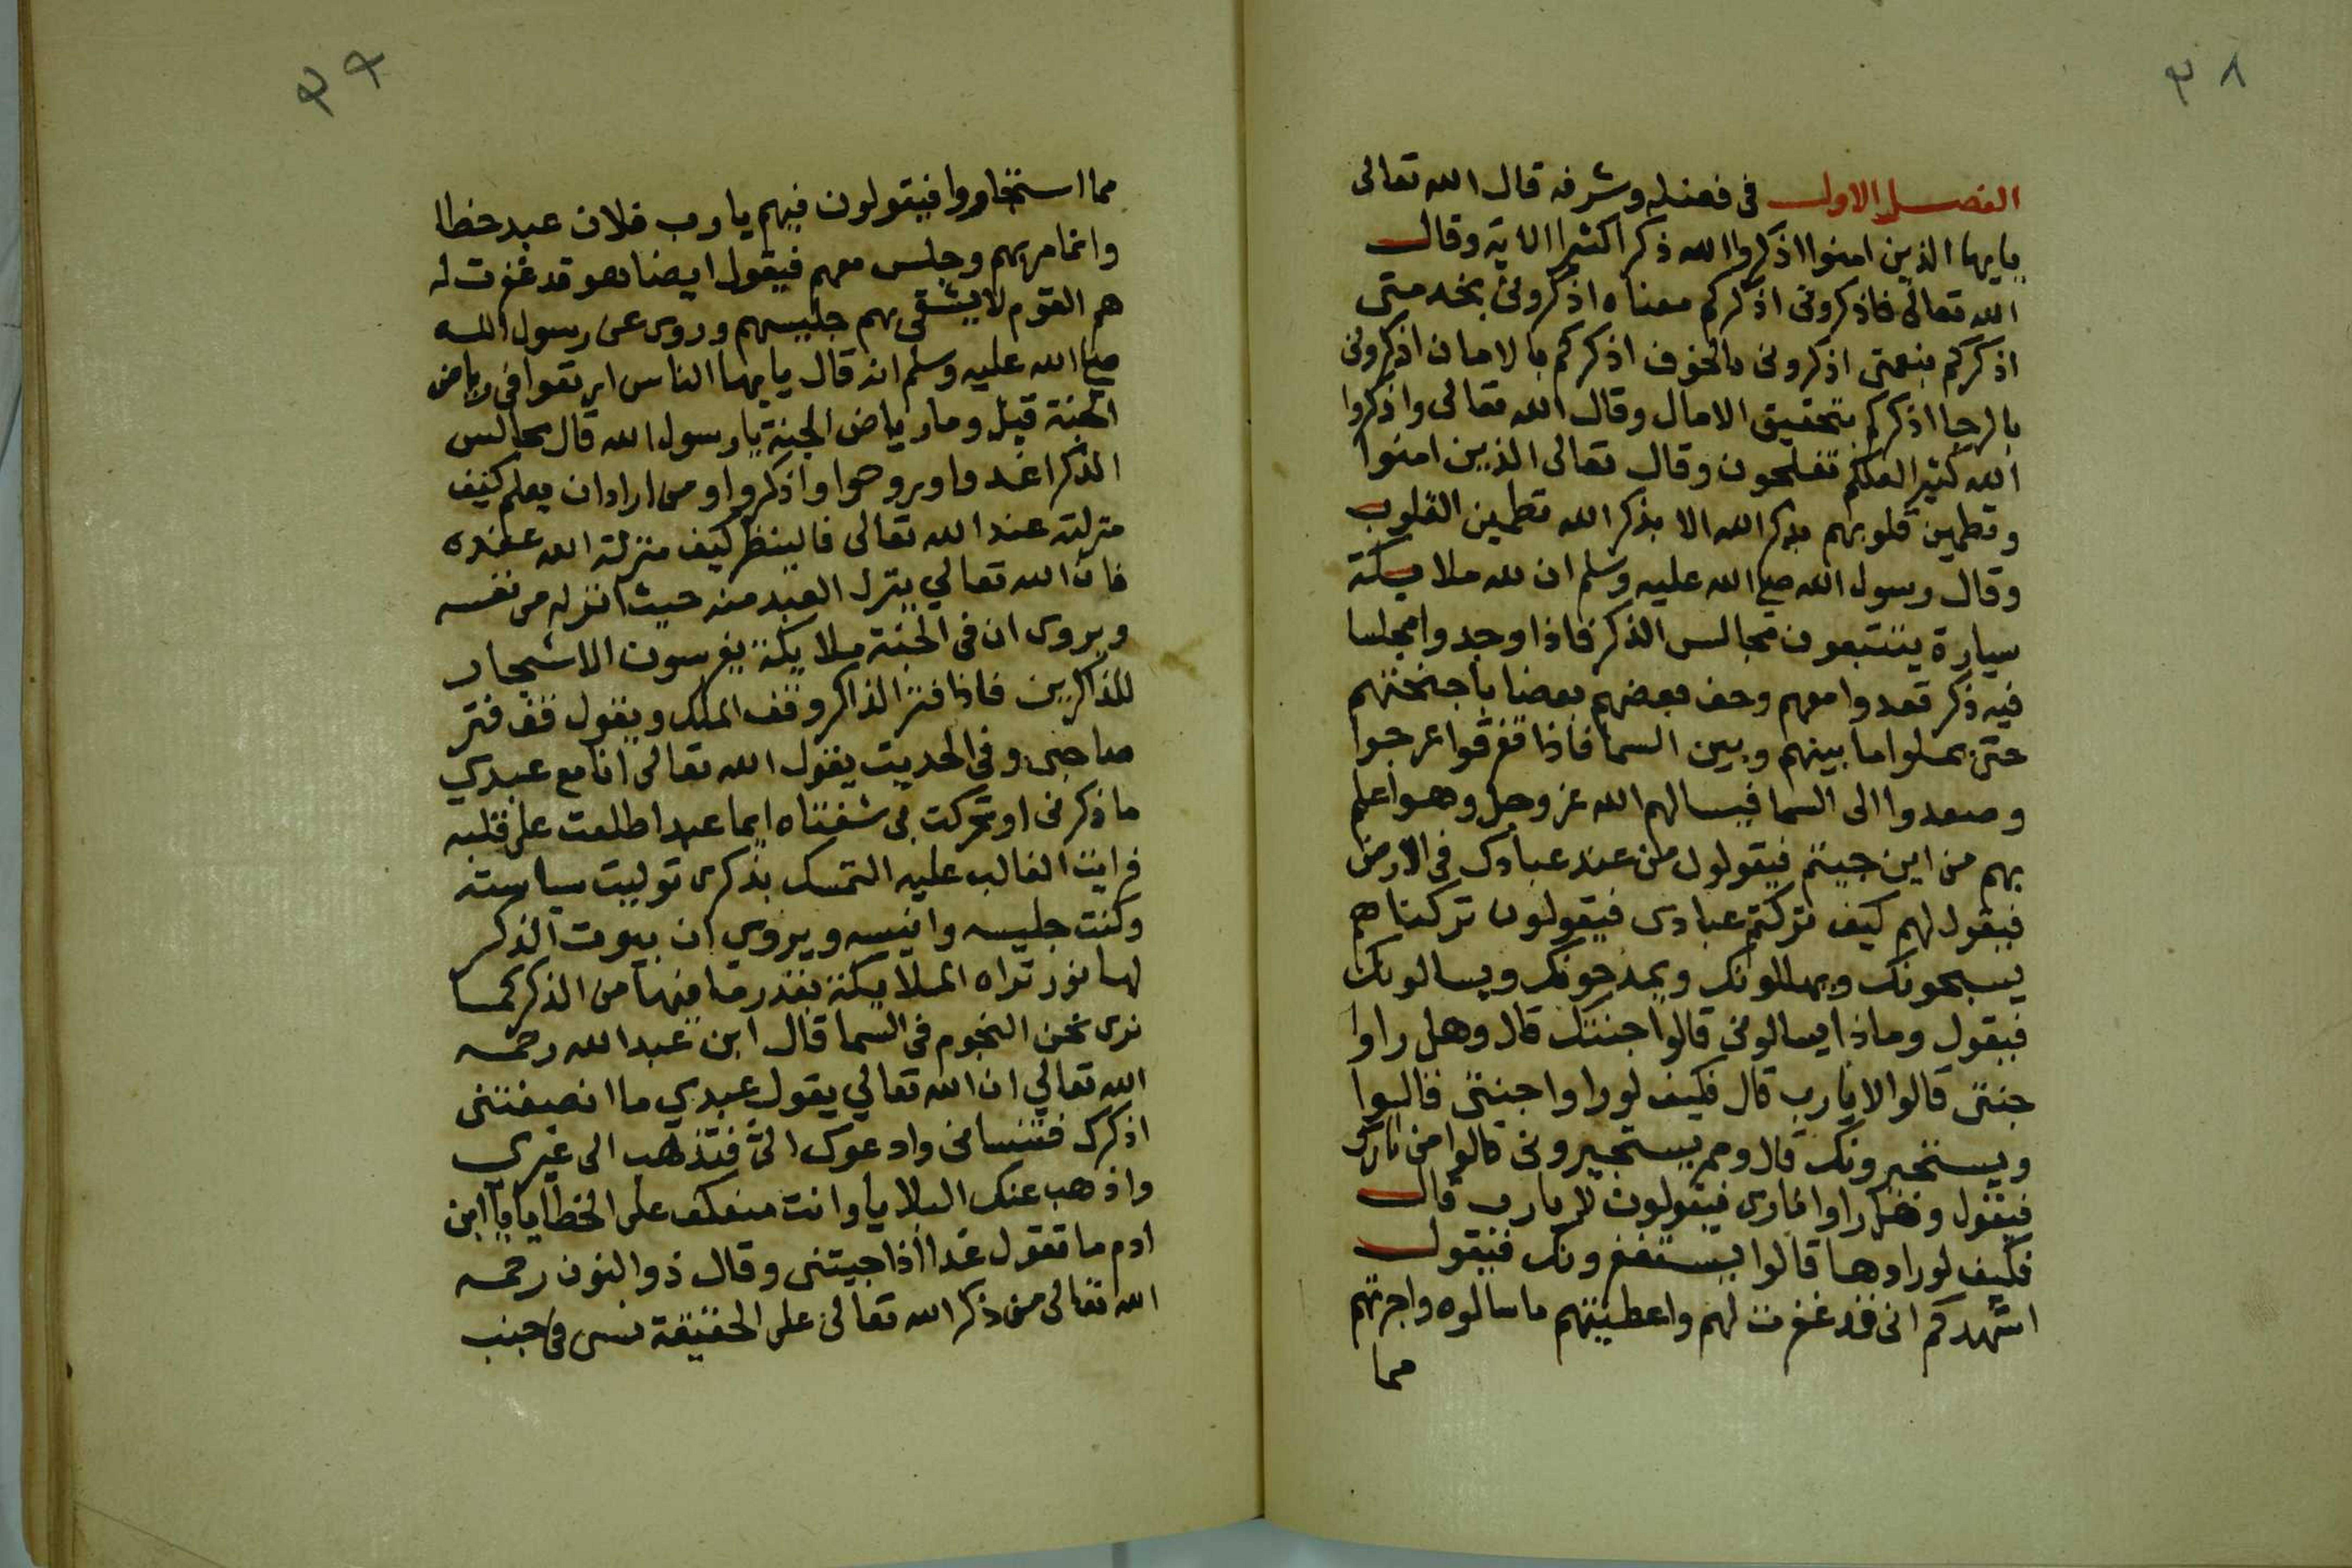 ٣٨
الفصل الاول في فضله وشرفه قال الله تعالى
يايها الذين امنوا اذكروا الله ذكرا كثيرا الاية وقال
الله تعالى فاذكرونى اذكركم معناه اذكرونى بخدمتى
اذكركم بنعمتى اذكرونى بالخوف اذكركم بالامان اذكرونى
بالرجا اذكركم بتحقيق الامال وقال الله تعالى واذكروا
الله كثيرا لعلكم تفلحون وقال تعالى الذين امنوا
وتطمين قلوبهم بذكر الله الا بذكر الله تطمين القلوب
وقال رسول الله صلى الله عليه وسلم ان لله ملايكة
سيارة يتتبعون مجالس الذكر فاذا وجدوا مجلسا
فيه ذكر قعدوا معهم وحف بعضهم بعضا باجنحتهم
حتى يملوا ما بينهم وبين السما فاذا تفرقوا عرجوا
وصعدوا الى السما فيسالهم الله عز وجل وهو اعلم
بهم من اين جيتم فيقولون من عند عبادك في الارض
فيقول لهم كيف تركتم عبادى فيقولون تركناهم
يسبحونك ويهللونك ويمدحونك ويسالونك
فيقول وماذا يسالونى قالوا جنتك قال وهل راوا
جنتى قالوا لا يارب قال فكيف لو راوا جنتى قالوا
ويستخيرونك قال ومم يستجيرونى قالوا من نارك
فيقول وهل راوا نارى فيقولون لا يارب قال
فكيف لو راوها قالوا يستغفرونك فيقول
اشهدكم انى قد غفرت لهم واعطيتهم ما سالوه واجرتهم
مما
٣٩
مما استخاروا فيقولون فيهم يارب فلان عبد خطا
وانما مر بهم وجلس معهم فيقول ايضا هو قد غفرت له
هم القوم لا يشقى بهم جليسهم وروى عن رسول الله
صلى الله عليه وسلم انه قال يايها الناس ارتعوا في رياض
الجنة قيل وما رياض الجنة يا رسول الله قال مجالس
الذكر اغدوا وروحوا واذكروا ومن اراد ان يعلم كيف
منزلته عند الله تعالى فالينظر كيف منزلة الله عنده
فان الله تعالي ينزل العبد منه حيث انزله من نفسه
ويروى ان في الجنة ملايكة يغرسون الاشجار
للذاكرين فاذا فتر الذاكر وقف الملك ويقول قف فتر
صاحبى وفي الحديث يقول الله تعالى انا مع عبدي
ما ذكرنى او تحركت بى شفتاه ايما عبد اطلعت على قلبه
فرايت الغالب عليه التمسك بذكرى توليت سياسته
وكنت جليسه وانيسه ويروي ان بيوت الذكر
لها نور تراه الملايكة بقدر ما فيها من الذكر كما
نرى نحن النجوم في السما قال ابن عبد الله رحمه
الله تعالي ان الله تعالي يقول عبدي ما انصفتنى
اذكرك فتنسانى وادعوك الىّ فتذهب الى غيري
واذهب عنك البلايا وانت منعكف على الخطايا يا ابن
ادم ما تقول غدا اذا جيتنى وقال ذوالنون رحمه
الله تعالى من ذكر الله تعالى على الحقيقة نسى في جنب